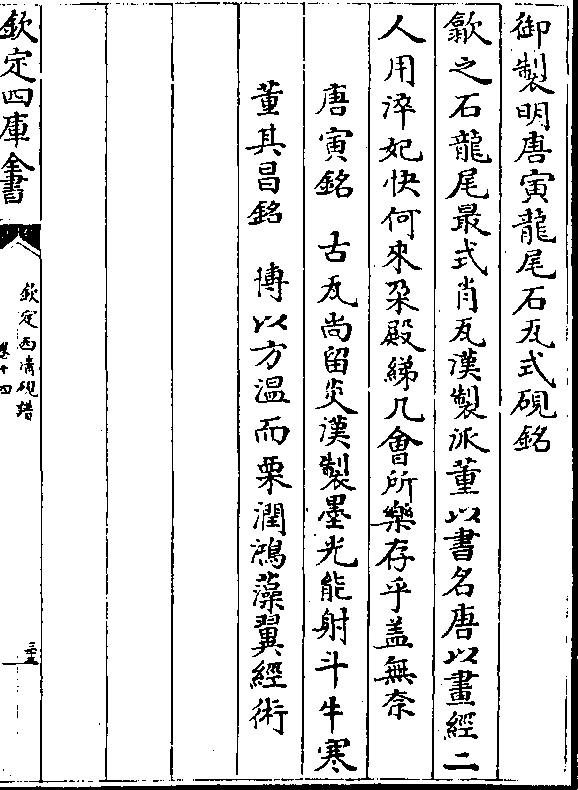 御製明唐寅龍尾石瓦式硯銘
歙之石龍尾最式肖瓦漢製派董以書名唐以畫經二
人用淬妃快何來朶殿綈几會所樂存乎葢無奈
唐寅銘 古瓦尚留炎漢製墨光能射斗牛寒
董其昌銘 博以方溫而栗潤鴻藻翼經術
欽定四庫全書
欽定西清硯譜
卷十四
三十五